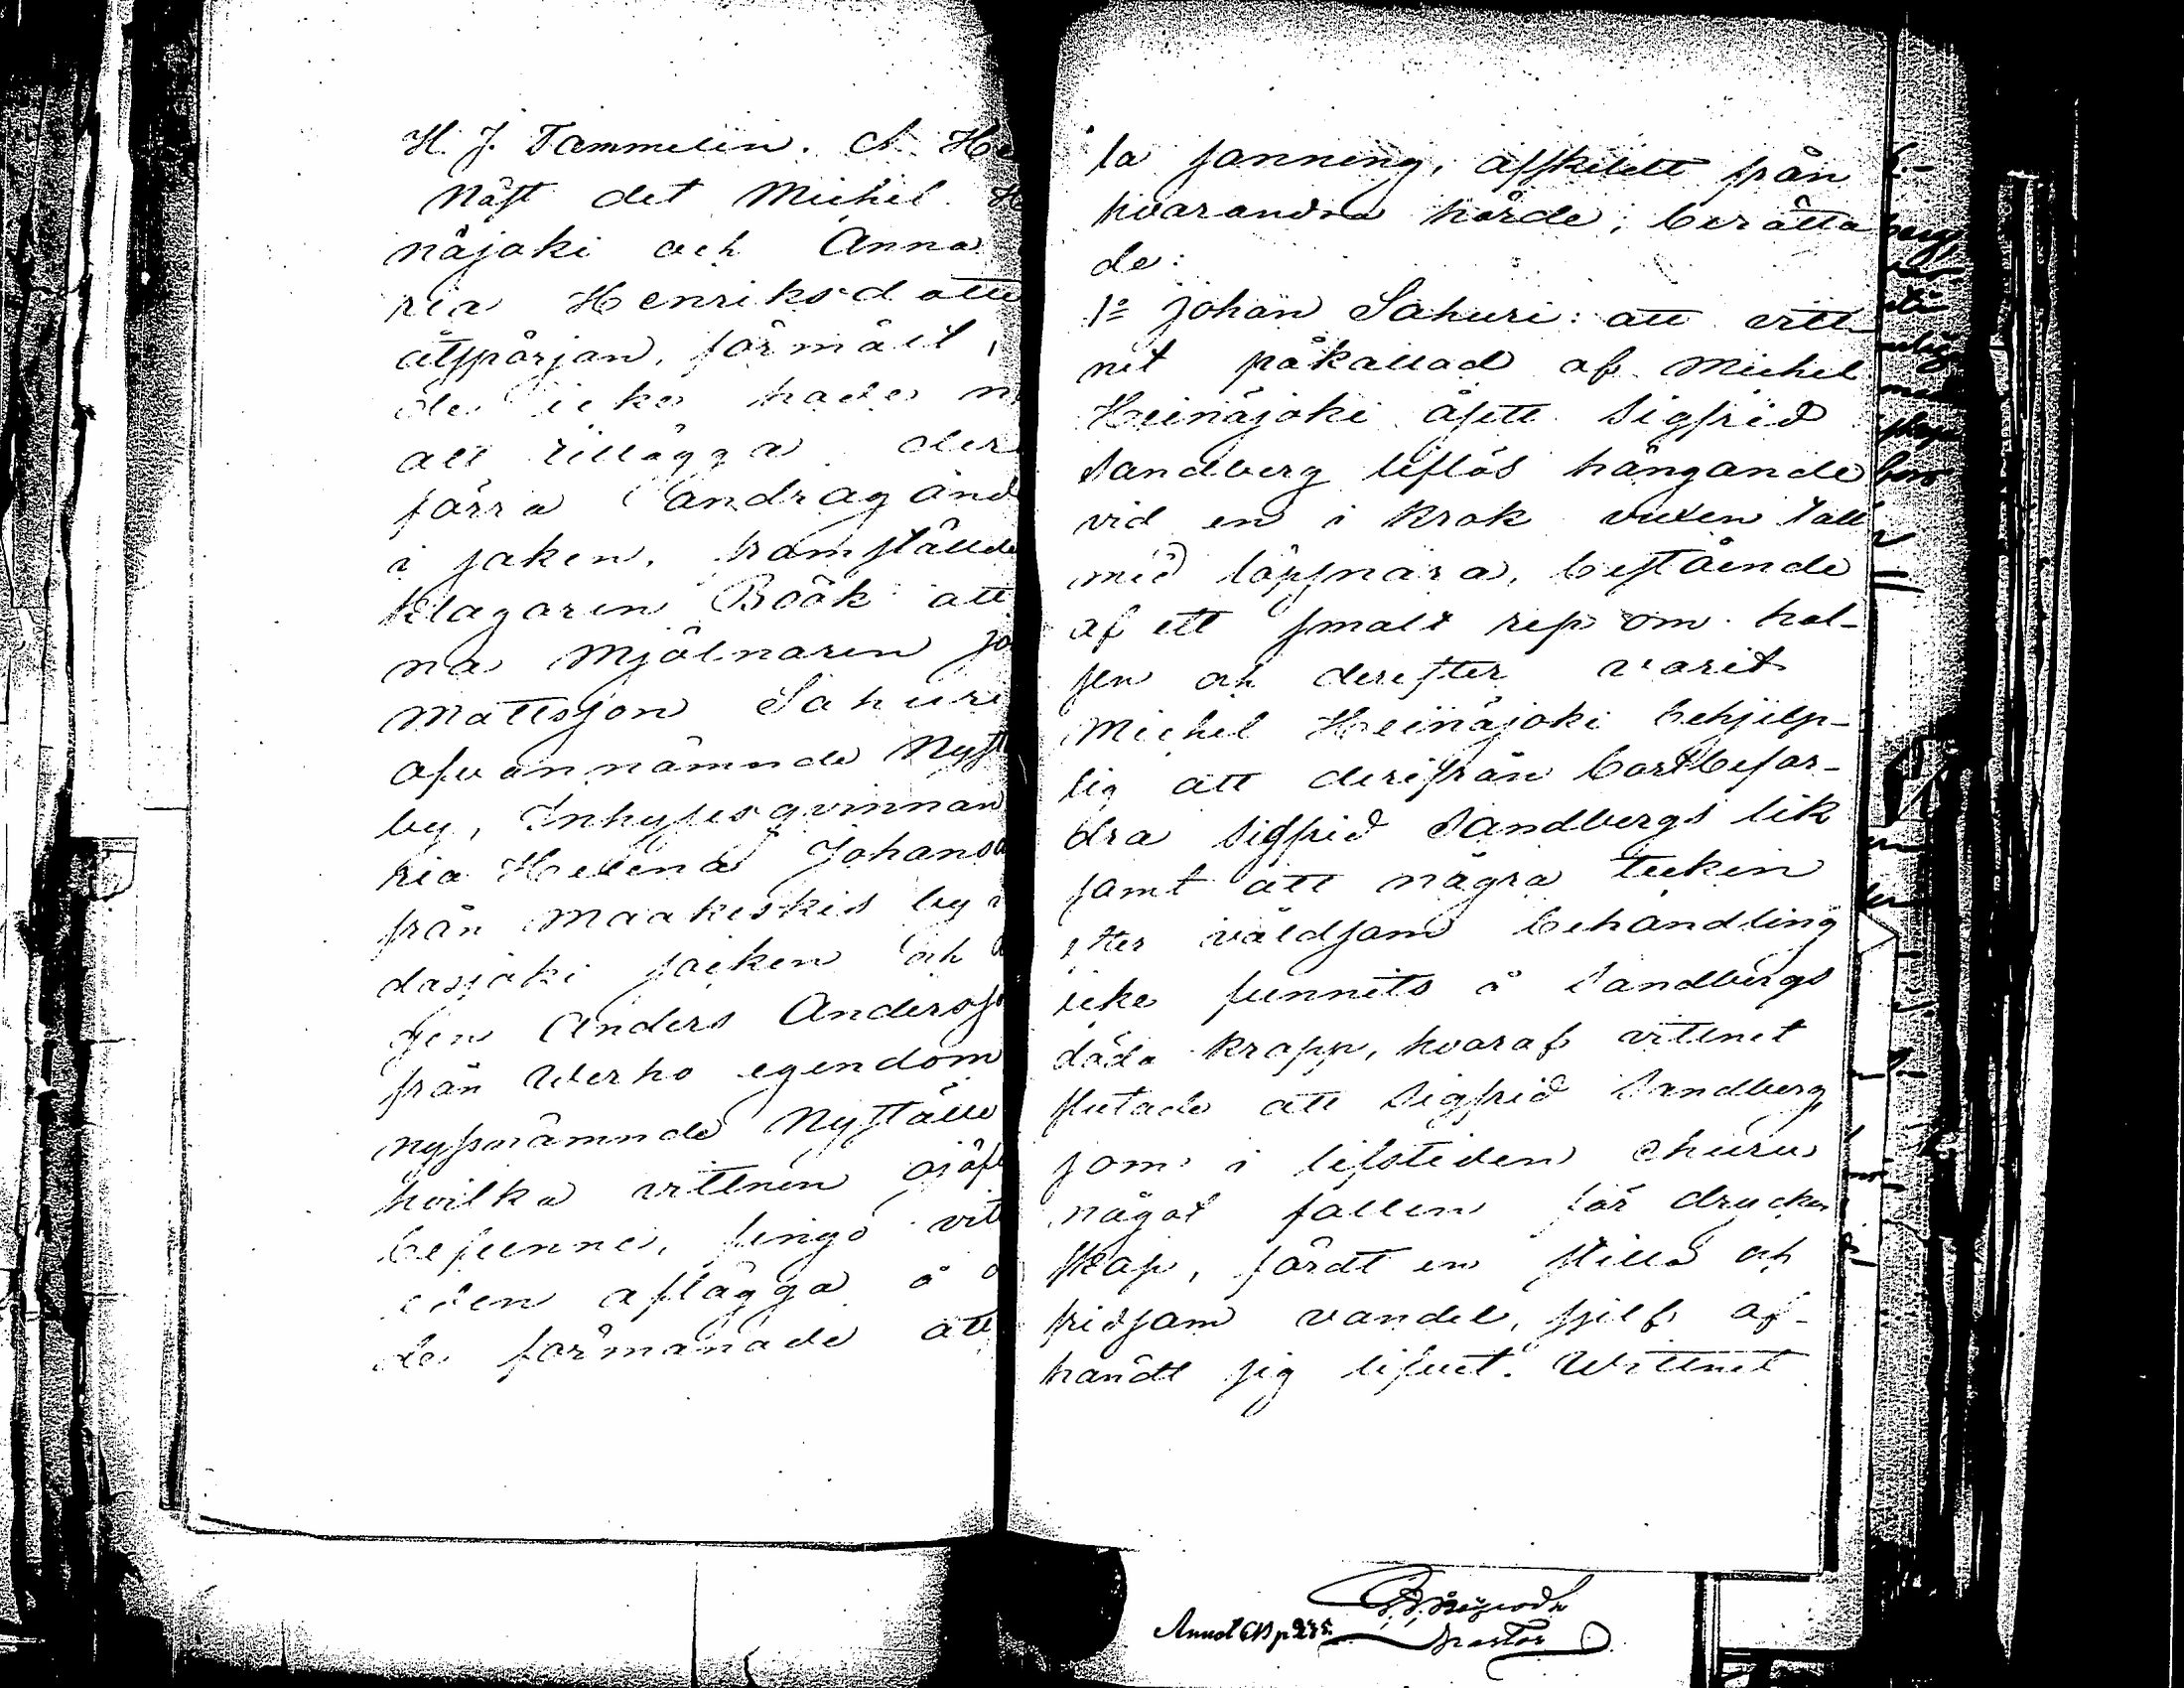 H. J. Tammelin. A. He
Näst det Michel H
näjoki och Anna
ria Henriksdotte
åtspörjan, förmält,
de icke hade n
att tillägga der
förra andragand
i saken, framstälde
klagaren Böök att
na Mjölnaren Jo
Mattsson Sahuri
ofvannämnde Nyst
by, Inhysesqvinnan
ria Helena Johansd
från Maakeskis by i
dasjoki socken och
gen Anders Anderss
från Werho egendom
nyssnämnde Nyställe
hvilka vittnen ojäf
befunne, fingo vitt
eden aflägga å
de förmanade att
la sanning, afskildt från
hvarandra hörde, berätta
de:
1º Johan Sahuri: att vitt-
net påkallad af Michel
Heinäjoki åsett Sigfrid
Sandberg liflös hängande
vid en i krok vuxen tall
med löpsnara, bestående
af ett smalt rep om hal-
sen och derefter varit
Michel Heinäjoki behjelp-
lig att derifrån bortbefor-
dra Sigfrid Sandbergs lik
samt att några tecken
efter våldsam behandling
icke funnits å Sandbergs
döda kropp, hvaraf vittnet
slutade att Sigfrid Sandberg
som i lifstiden ehuru
något fallen för drycken
skap, fördt en stilla och
fridsam vandel, sjelf af-
handt sig lifvet. Wittnet
Annot CB p 235.
Pastor